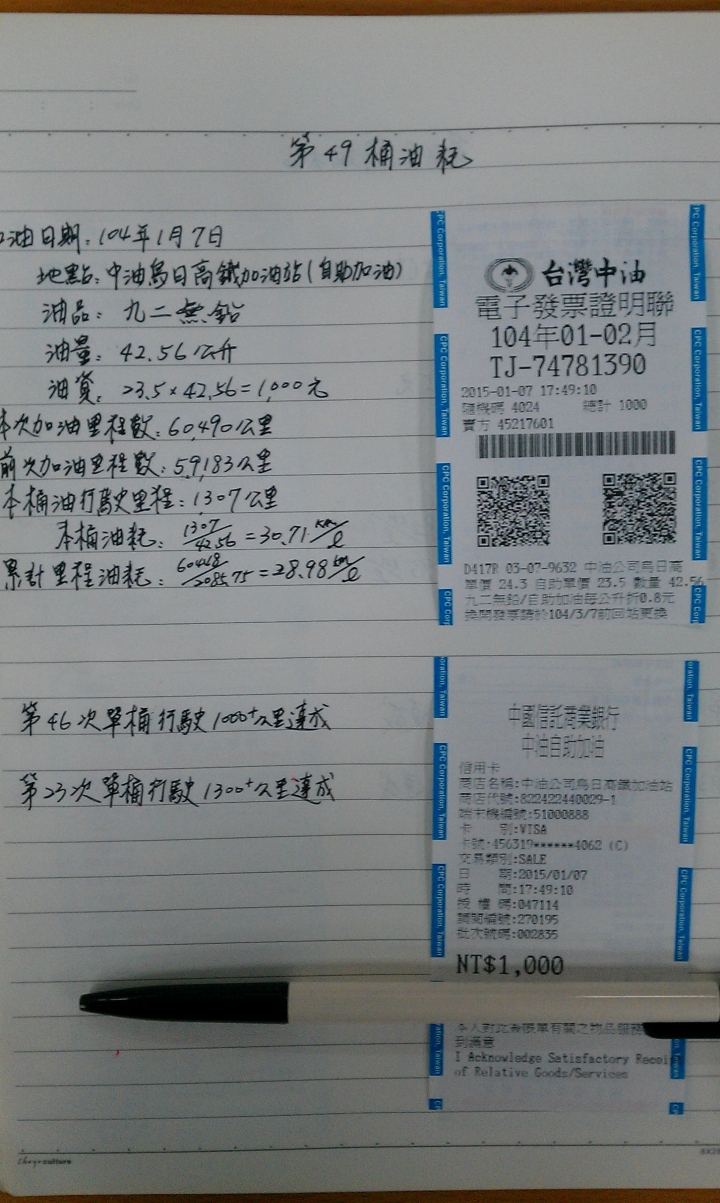 第49桶油耗
油日期：104年1月7日
地點：中油烏日高鐵加油站(自助加油)
油品：九二無鉛
油量：42.56公升
油資：23.5×42.56=1,000元
本次加油里程數：60,490公里
前次加油里程數：59,183公里
本桶油行駛里程：1,307公里
本桶油耗：1307/42.56=30.71 km/ℓ
累計里程油耗：60448/2085.75=28.98 km/ℓ
第46次單桶行駛1000+公里達成
第23次單桶行駛1300+公里達成
台灣中油
電子發票證明聯
104年01-02月
TJ-74781390
2015-01-07 17:49:10
隨機碼 4024 總計 1000
賣方 45217601
D417R 03-07-9632 中油公司烏日高
單價 24.3 自助單價 23.5 數量 42.56
九二無鉛/自助加油每公升折0.8元
換開發票請於104/3/7前回站更換
中國信託商業銀行
中油自助加油
信用卡
商店名稱:中油公司烏日高鐵加油站
商店代號:822422440029-1
端末機編號:51000888
卡 別:VISA
卡號:456319******4062 (C)
交易類別:SALE
日 期:2015/01/07
時 間:17:49:10
授 權 碼:047114
調閱編號:270195
批次號碼:002835
NT$1,000
本人對此簽帳單有關之物品服務
到滿意
I Acknowledge Satisfactory Recei
of Relative Goods/Services
CPC Corporation, Taiwan